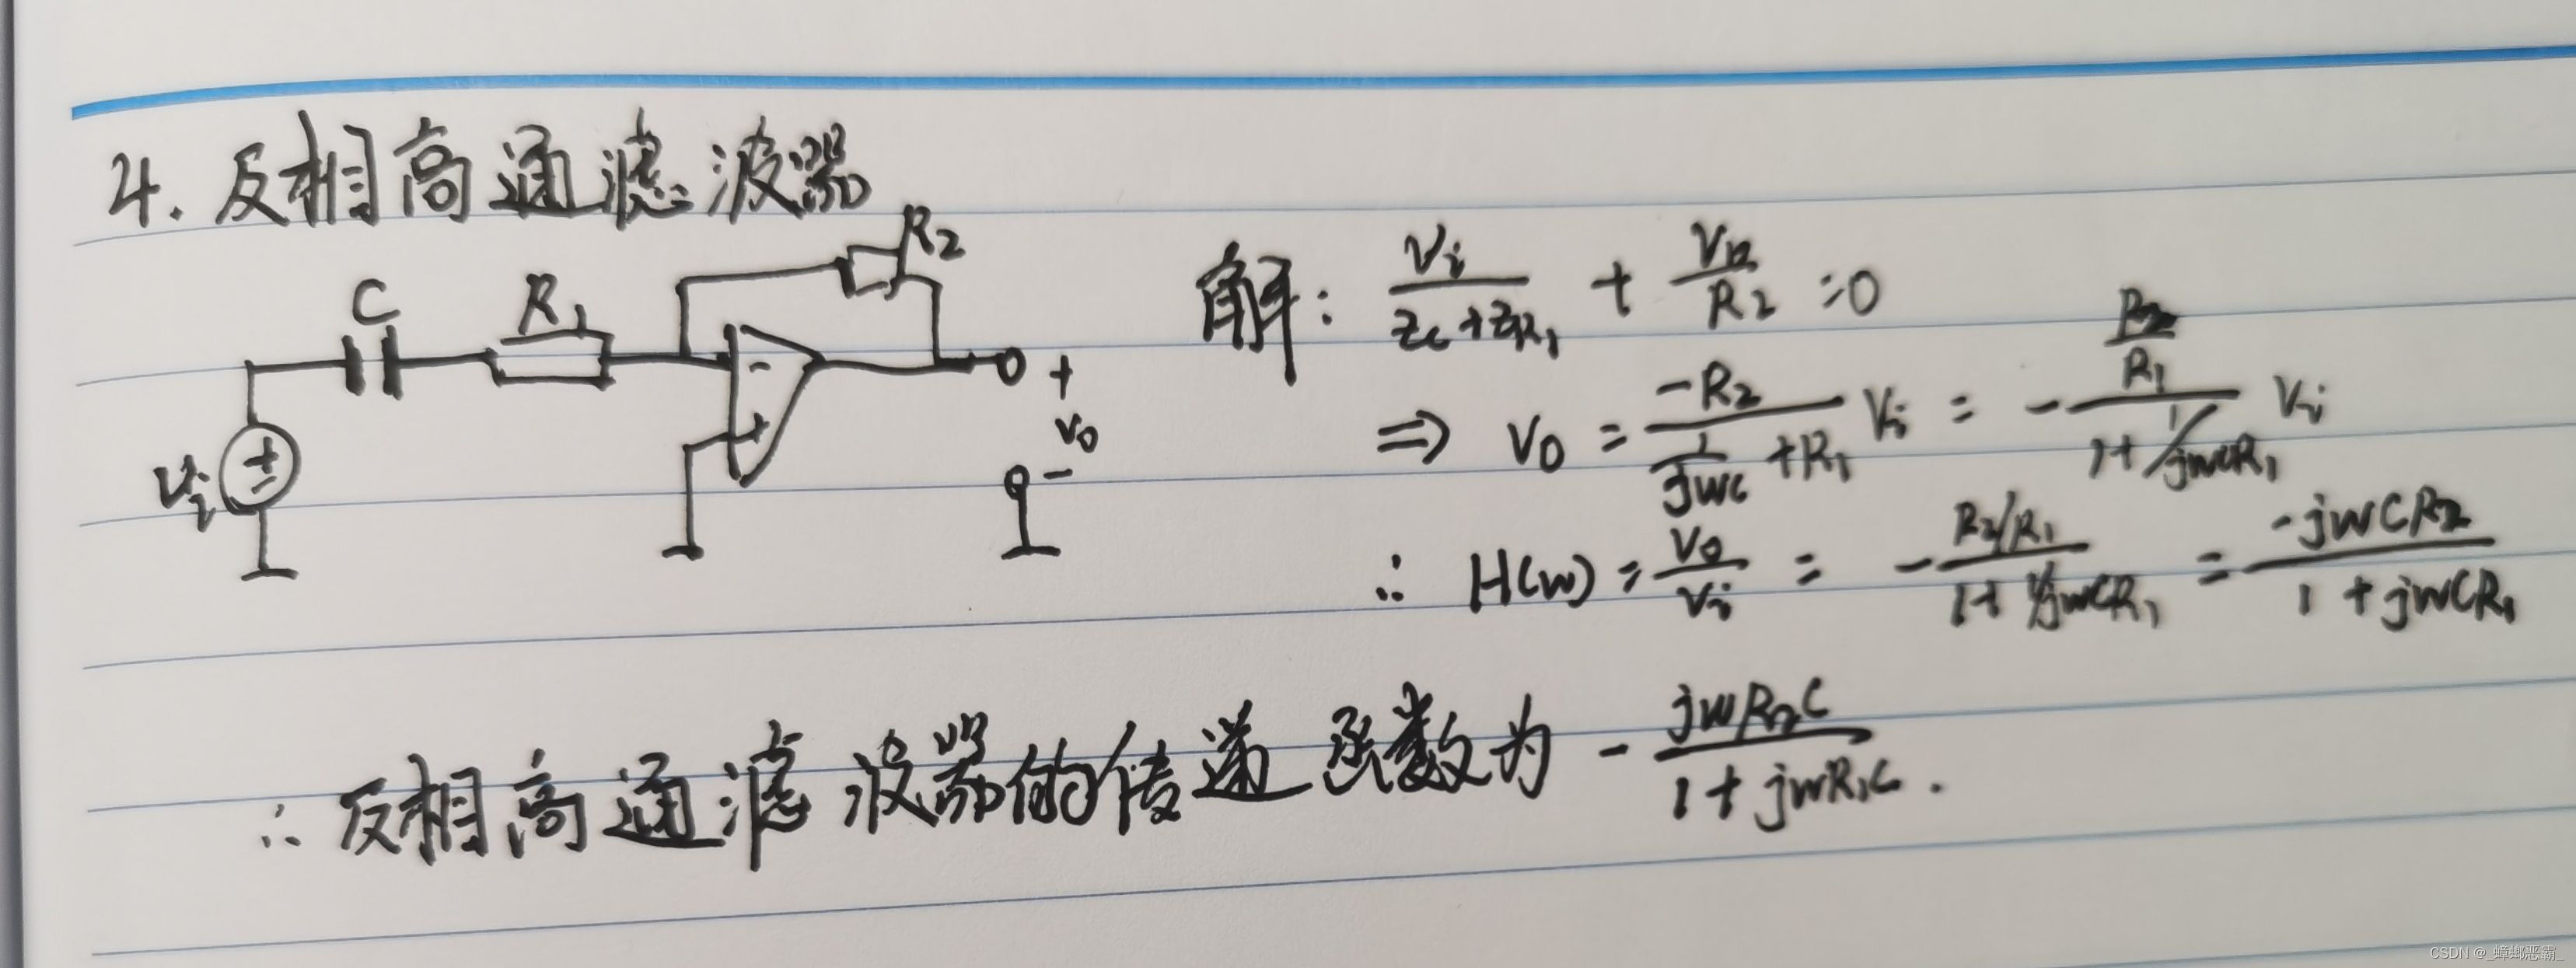 4. 反相高通滤波器
R₂
C
R₁
-
+
+
V₀
-
Vᵢ
+
-
解: Vᵢ/(Z_C+Z_R₁) + V₀/R₂ = 0
⇒ V₀ = -R₂/(1/jωC + R₁) Vᵢ = - (R₂/R₁)/(1+1/jωCR₁) Vᵢ
∴ H(ω) = V₀/Vᵢ = - (R₂/R₁)/(1+1/jωCR₁) = -jωCR₂/(1+jωCR₁)
∴ 反相高通滤波器的传递函数为 - jωR₂C/(1+jωR₁C).
CSDN @_蟑螂恶霸_